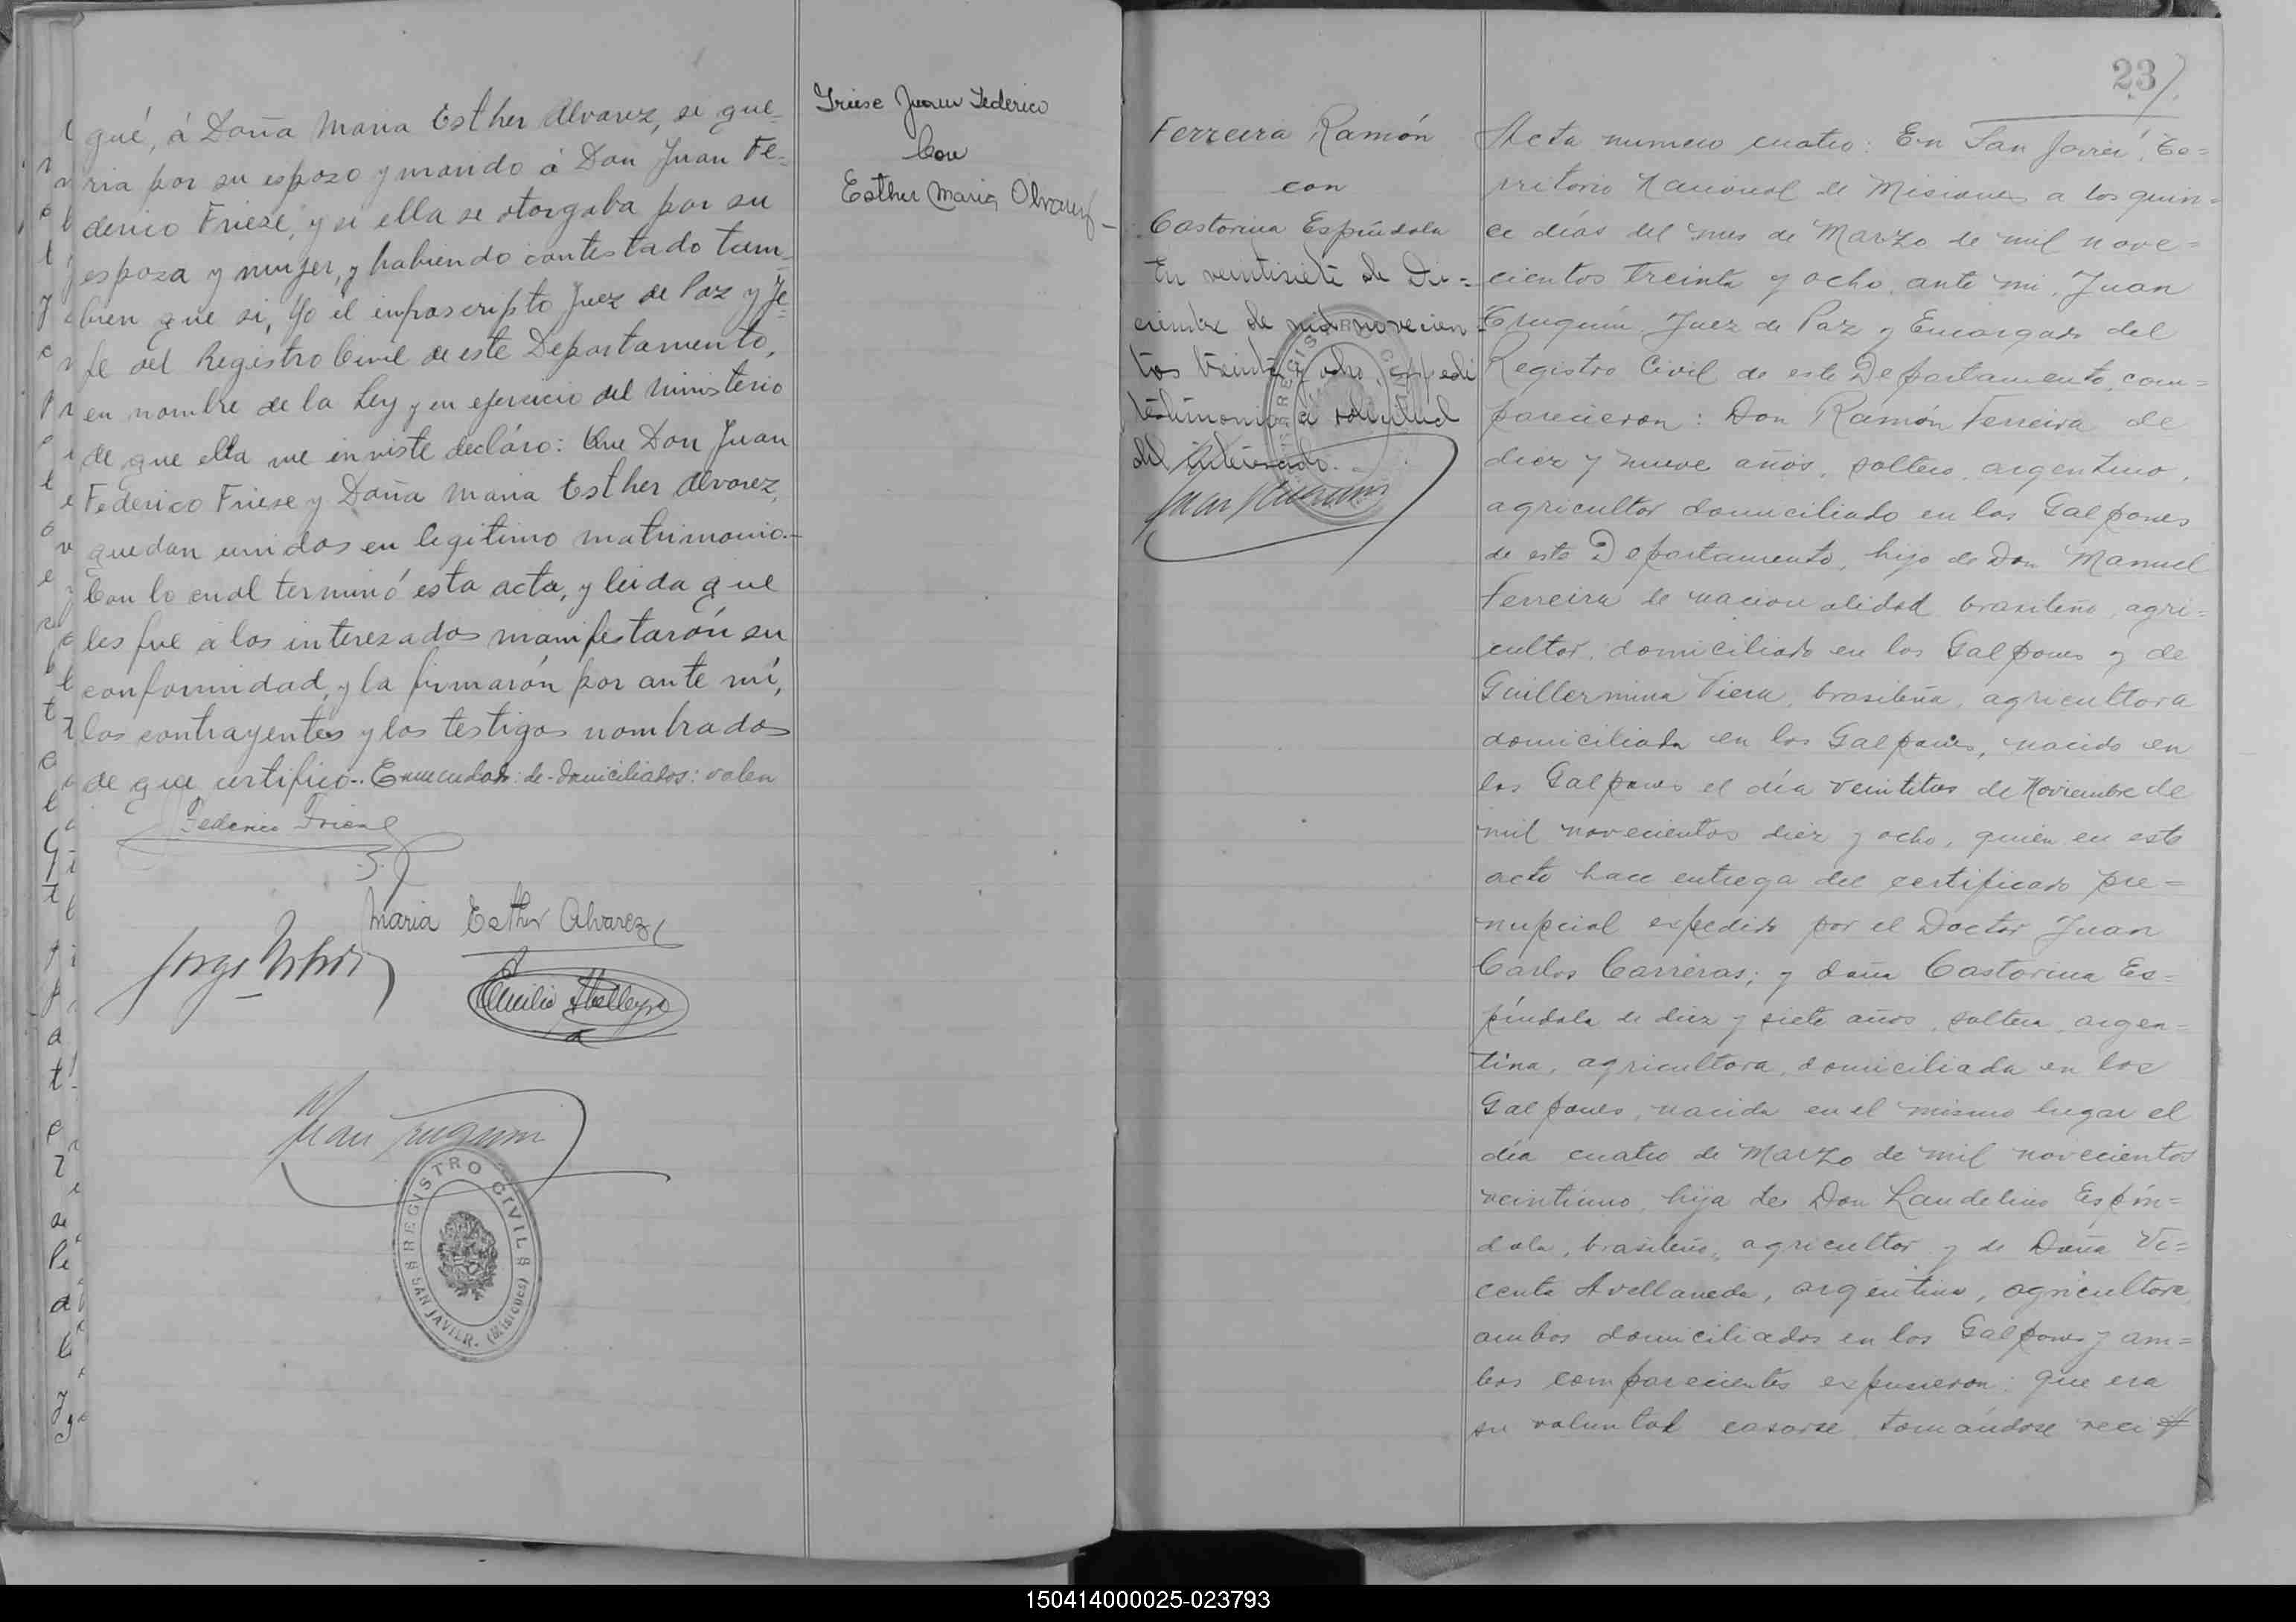 gué, á Doña Maria Esther Alvarez, si que=
ria por su esposo y marido á Don Juan Fe=
derico Friese, y si ella se otorgaba por su
esposa y mujer, y habiendo contestado tam=
bien que si, Yo el infrascripto Juez de Paz y Je=
fe del Registro Civil de este Departamento,
en nombre de la Ley y en ejercicio del ministerio
de que ella me inviste decláro: Que Don Juan
Federico Friese y Doña Maria Esther Alvarez,
quedan unidos en legitimo matrimonio.-
Con lo cual terminó esta acta, y leida que
les fué a los interezados manifestarón su
conformidad, y la firmarón por ante mí,
los contrayentes y los testigos nombrados
de que certifico.- Enmendado: de-domiciliados: valen
Federico Friese
Maria Esther Alvarez
Jorge
Emilio
Juan
REGISTRO CIVIL
SAN JAVIER. (Misiones)
Friese Juan Federico
Con
Esther Maria Alvarez
23
Ferreira Ramón
con
Castorina Espíndola
En veintisiete de Di=
ciembre de mil novecien=
tos treinta y ocho, expedí
testimonio a solicitud
del interesado.
Juan
Acta numero cuatro: En San Javier, Te=
rritorio Nacional de Misiones a los quin=
ce días del mes de Marzo de mil nove=
cientos treinta y ocho, ante mi, Juan
Juez de Paz y Encargado del
Registro Civil de este Departamento, com=
parecieron: Don Ramón Ferreira de
diez y nueve años, soltero, argentino,
agricultor domiciliado en los Galpones
de este Departamento, hijo de Don Manuel
Ferreira de nacionalidad brasileño, agri=
cultor, domiciliado en los Galpones y de
Guillermina Viera, brasileña, agricultora
domiciliada en los Galpones, nacido en
los Galpones el día veintitres de Noviembre de
mil novecientos diez y ocho, quién en este
acto hace entrega del certificado pre=
nupcial expedido por el Doctor Juan
Carlos Carreras; y doña Castorina Es=
píndola de diez y siete años, soltera, argen=
tina, agricultora, domiciliada en los
Galpones, nacida en el mismo lugar el
día cuatro de Marzo de mil novecientos
veintiuno, hija de Don Laudelino Espín=
dola, brasileño, agricultor y de Doña Vi=
centa Avellaneda, argentina, agricultora
ambos domiciliados en los Galpones y am=
bos comparecientes expusieron: que era
su voluntad casarse tomándose reci
150414000025-023793